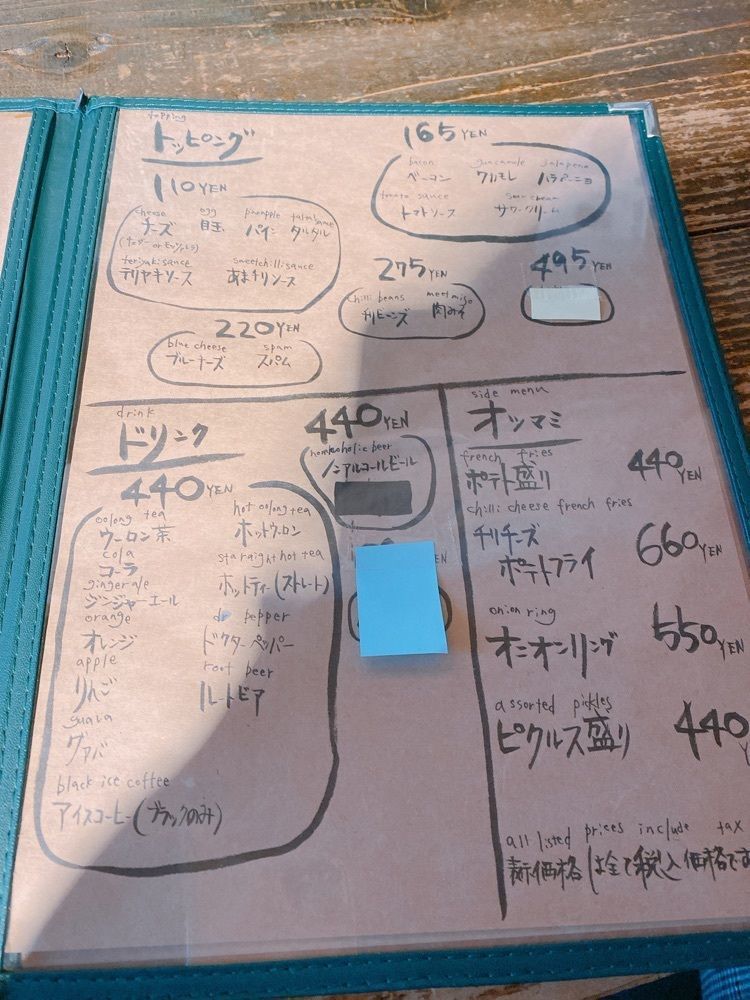 topping
トッピング
110 YEN
cheese egg pineapple
チーズ 目玉 パイン タルタル
teriyaki sauce sweetchilli sauce
テリヤキソース あまチリソース
165 YEN
bacon guacamole jalapeno
ベーコン ワカモレ ハラペーニョ
tomato sauce sour cream
トマトソース サワークリーム
275 YEN
chilli beans meet miso
チリビーンズ 肉みそ
495 YEN
220 YEN
blue cheese spam
ブルーチーズ スパム
drink
ドリンク
440 YEN
oolong tea hot oolong tea
ウーロン茶 ホットウーロン
cola staraight hot tea
コーラ ホットティー(ストレート)
ginger ale
ジンジャーエール
orange dr pepper
オレンジ ドクターペッパー
apple root beer
りんご ルートビア
guava
グァバ
black ice coffee
アイスコーヒー(ブラックのみ)
440 YEN
beer
ノンアルコールビール
side menu
オツマミ
french fries
ポテト盛り 440 YEN
chilli cheese french fries
チリチーズ
ポテトフライ 660 YEN
onion ring
オニオンリング 550 YEN
assorted pickles
ピクルス盛り 440 Y
all listed prices include tax
表示価格は全て税込価格です